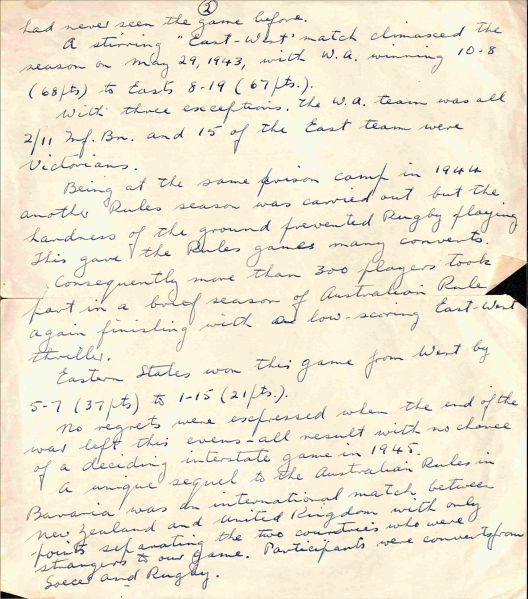 2
had never seen the game before.
A stirring "East-West" match climaxed the
season on May 29, 1943, with W.A. winning 10-8
(68 pts) to Easts 8-19 (67 pts.).
With three exceptions. the W.A. team was all
2/11 Inf. Bn. and 15 of the East team were
Victorians.
Being at the same prison camp in 1944
another Rules season was carried out but the
hardness of the ground prevented Rugby playing
This gave the Rules games many converts.
Consequently more than 300 players took
part in a brief season of Australian Rule
again finishing with a low-scoring East-West
thriller.
Eastern States won this game from West by
5-7 (37 pts) to 1-15 (21 pts.).
No regrets were expressed when the end of the
war left this evens-all result with no chance
of a deciding interstate game in 1945.
A unique sequel to the Australian Rules in
Bavaria was an international match between
New Zealand and United Kingdom with only
points separating the two countries who were
strangers to our game. Participants were converts from
Soccer and Rugby.